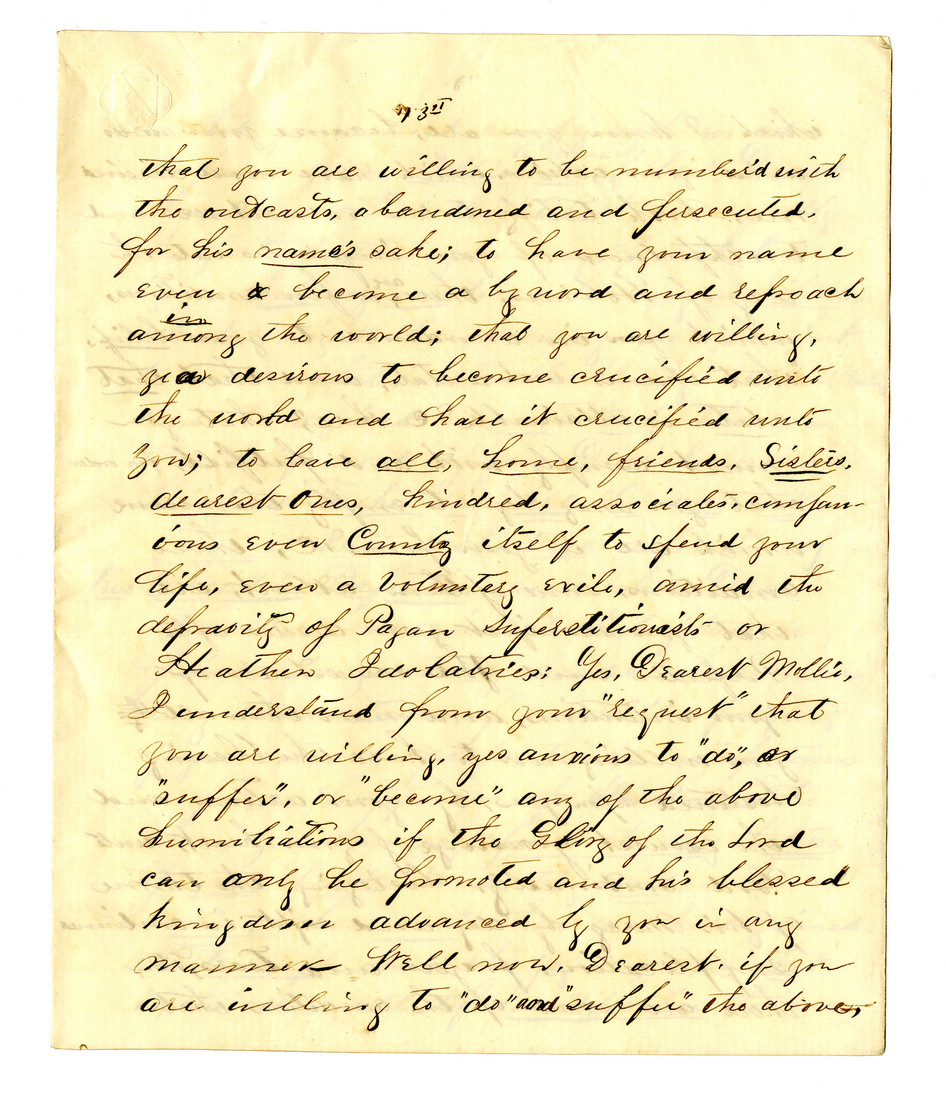 that you are willing to be number'd with
the outcasts, abandoned and persecuted,
for his name's sake; to have your name
even become a byword and reproach
in
among the world; that you are willing,
yea desirous to become crucified unto
the world and have it crucified unto
you; to leave all, home, friends, Sisters,
dearest Ones, kindred, associates, compan-
ions even Country itself to spend your
life, even a voluntary exile, amid the
depravity of Pagan Superstitionists or
Heathen Idolatries; Yes, Dearest Mollie,
I understand from your "request" that
you are willing, yes anxious to "do", or
"suffer", or "become" any of the above
humiliations if the Glory of the Lord
can only be promoted and his blessed
kingdom advanced by you in any
manner Well now, Dearest, if you
are willing to "do" and "suffer" the above,